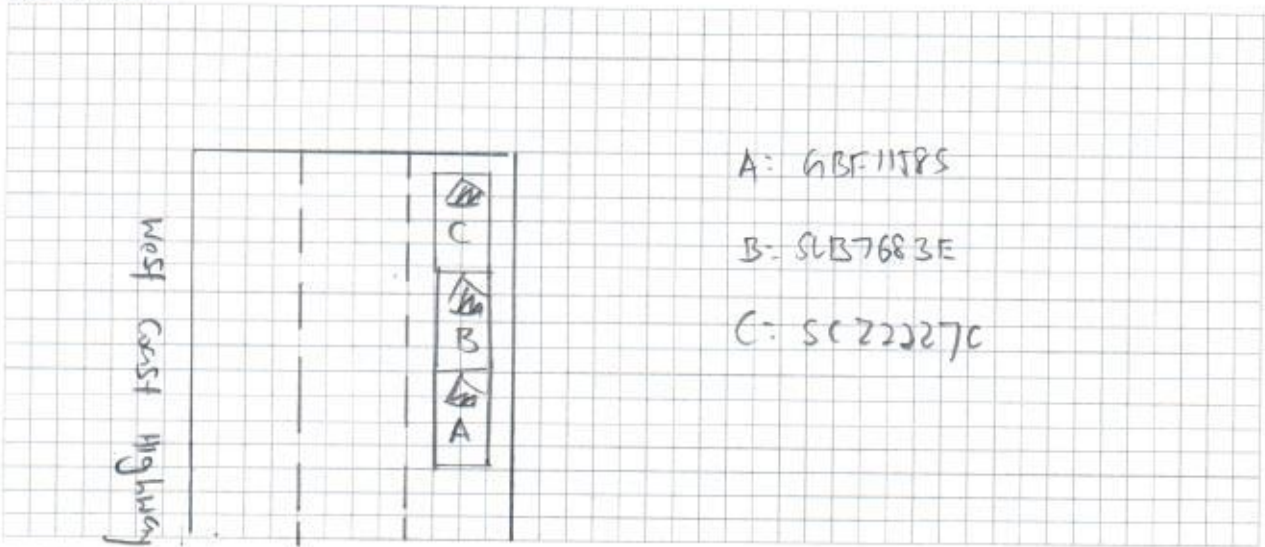 West Coast Highway
C
B
A
A: GBF1158S
B: SLB7683E
C: SCZ2227C